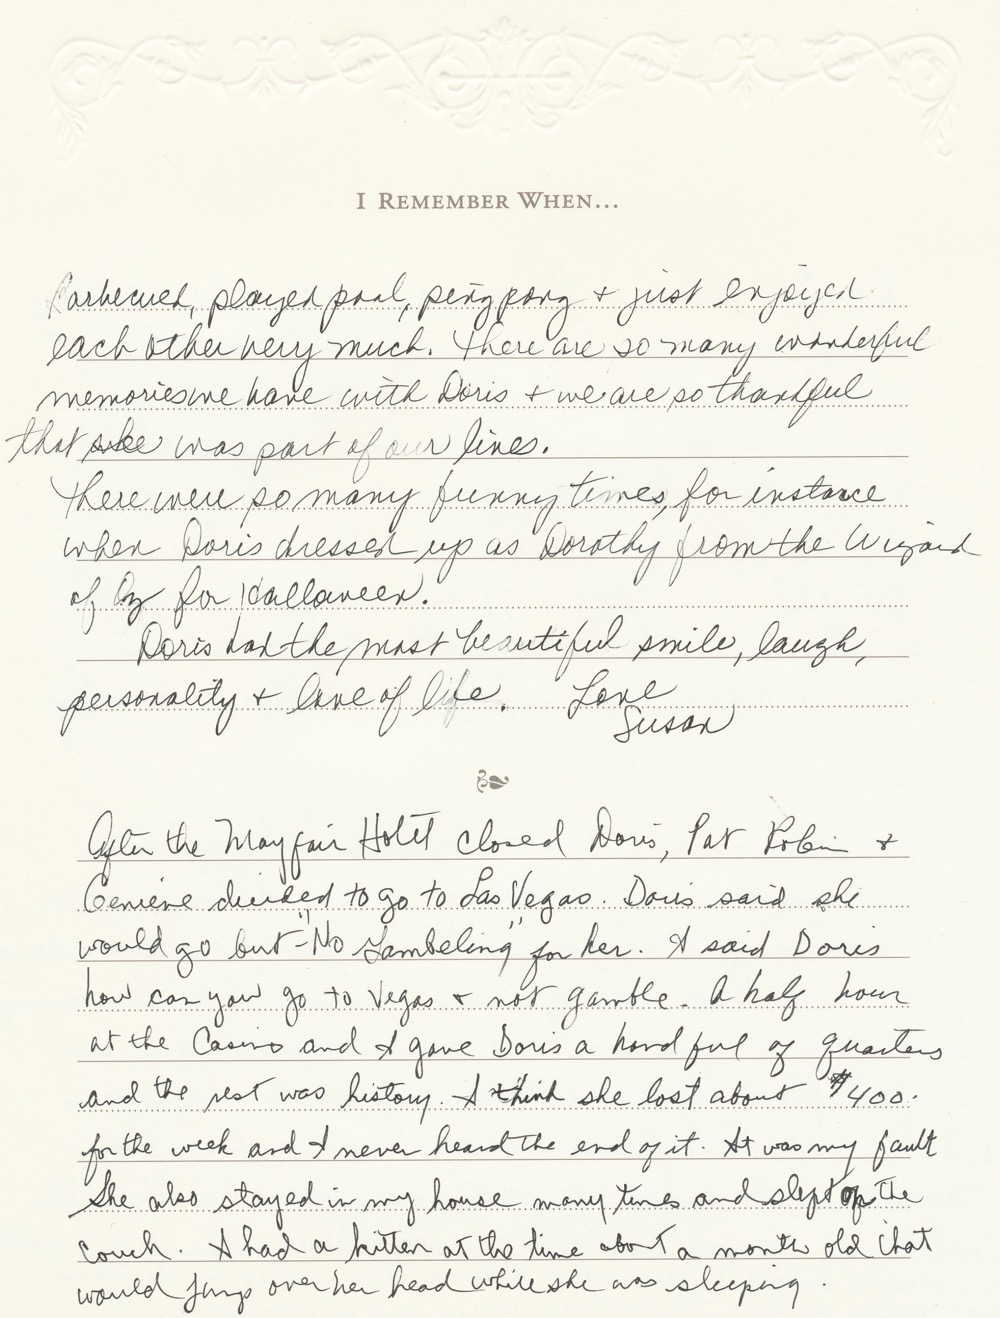 I REMEMBER WHEN...
Barbecued, played pool, ping pong + just enjoyed
each other very much. There are so many wonderful
memories we have with Doris + we are so thankful
that she was part of our lives.
There were so many funny times, for instance
when Doris dressed up as Dorothy from the Wizard
of Oz for Halloween.
Doris had the most beautiful smile, laugh,
personality + love of life. Love
Susan
After the Mayfair Hotel closed Doris, Pat Robin +
Genieve decided to go to Las Vegas. Doris said she
would go but - "No Gambeling" for her. I said Doris
how can you go to Vegas + not gamble. A half hour
at the Casino and I gave Doris a hand ful of quarters
and the rest was history. I think she lost about $400.
for the week and I never heard the end of it. It was my fault
She also stayed in my house many times and slept on the
couch. I had a kitten at the time about a month old that
would jump over her head while she was sleeping.